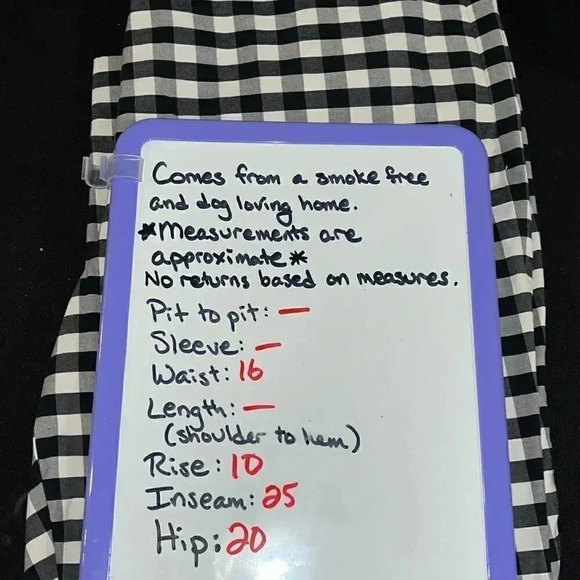 Comes from a smoke free
and dog loving home.
*Measurements are
approximate*
No returns based on measures.
Pit to pit: —
Sleeve: —
Waist: 16
Length: —
(shoulder to hem)
Rise: 10
Inseam: 25
Hip: 20